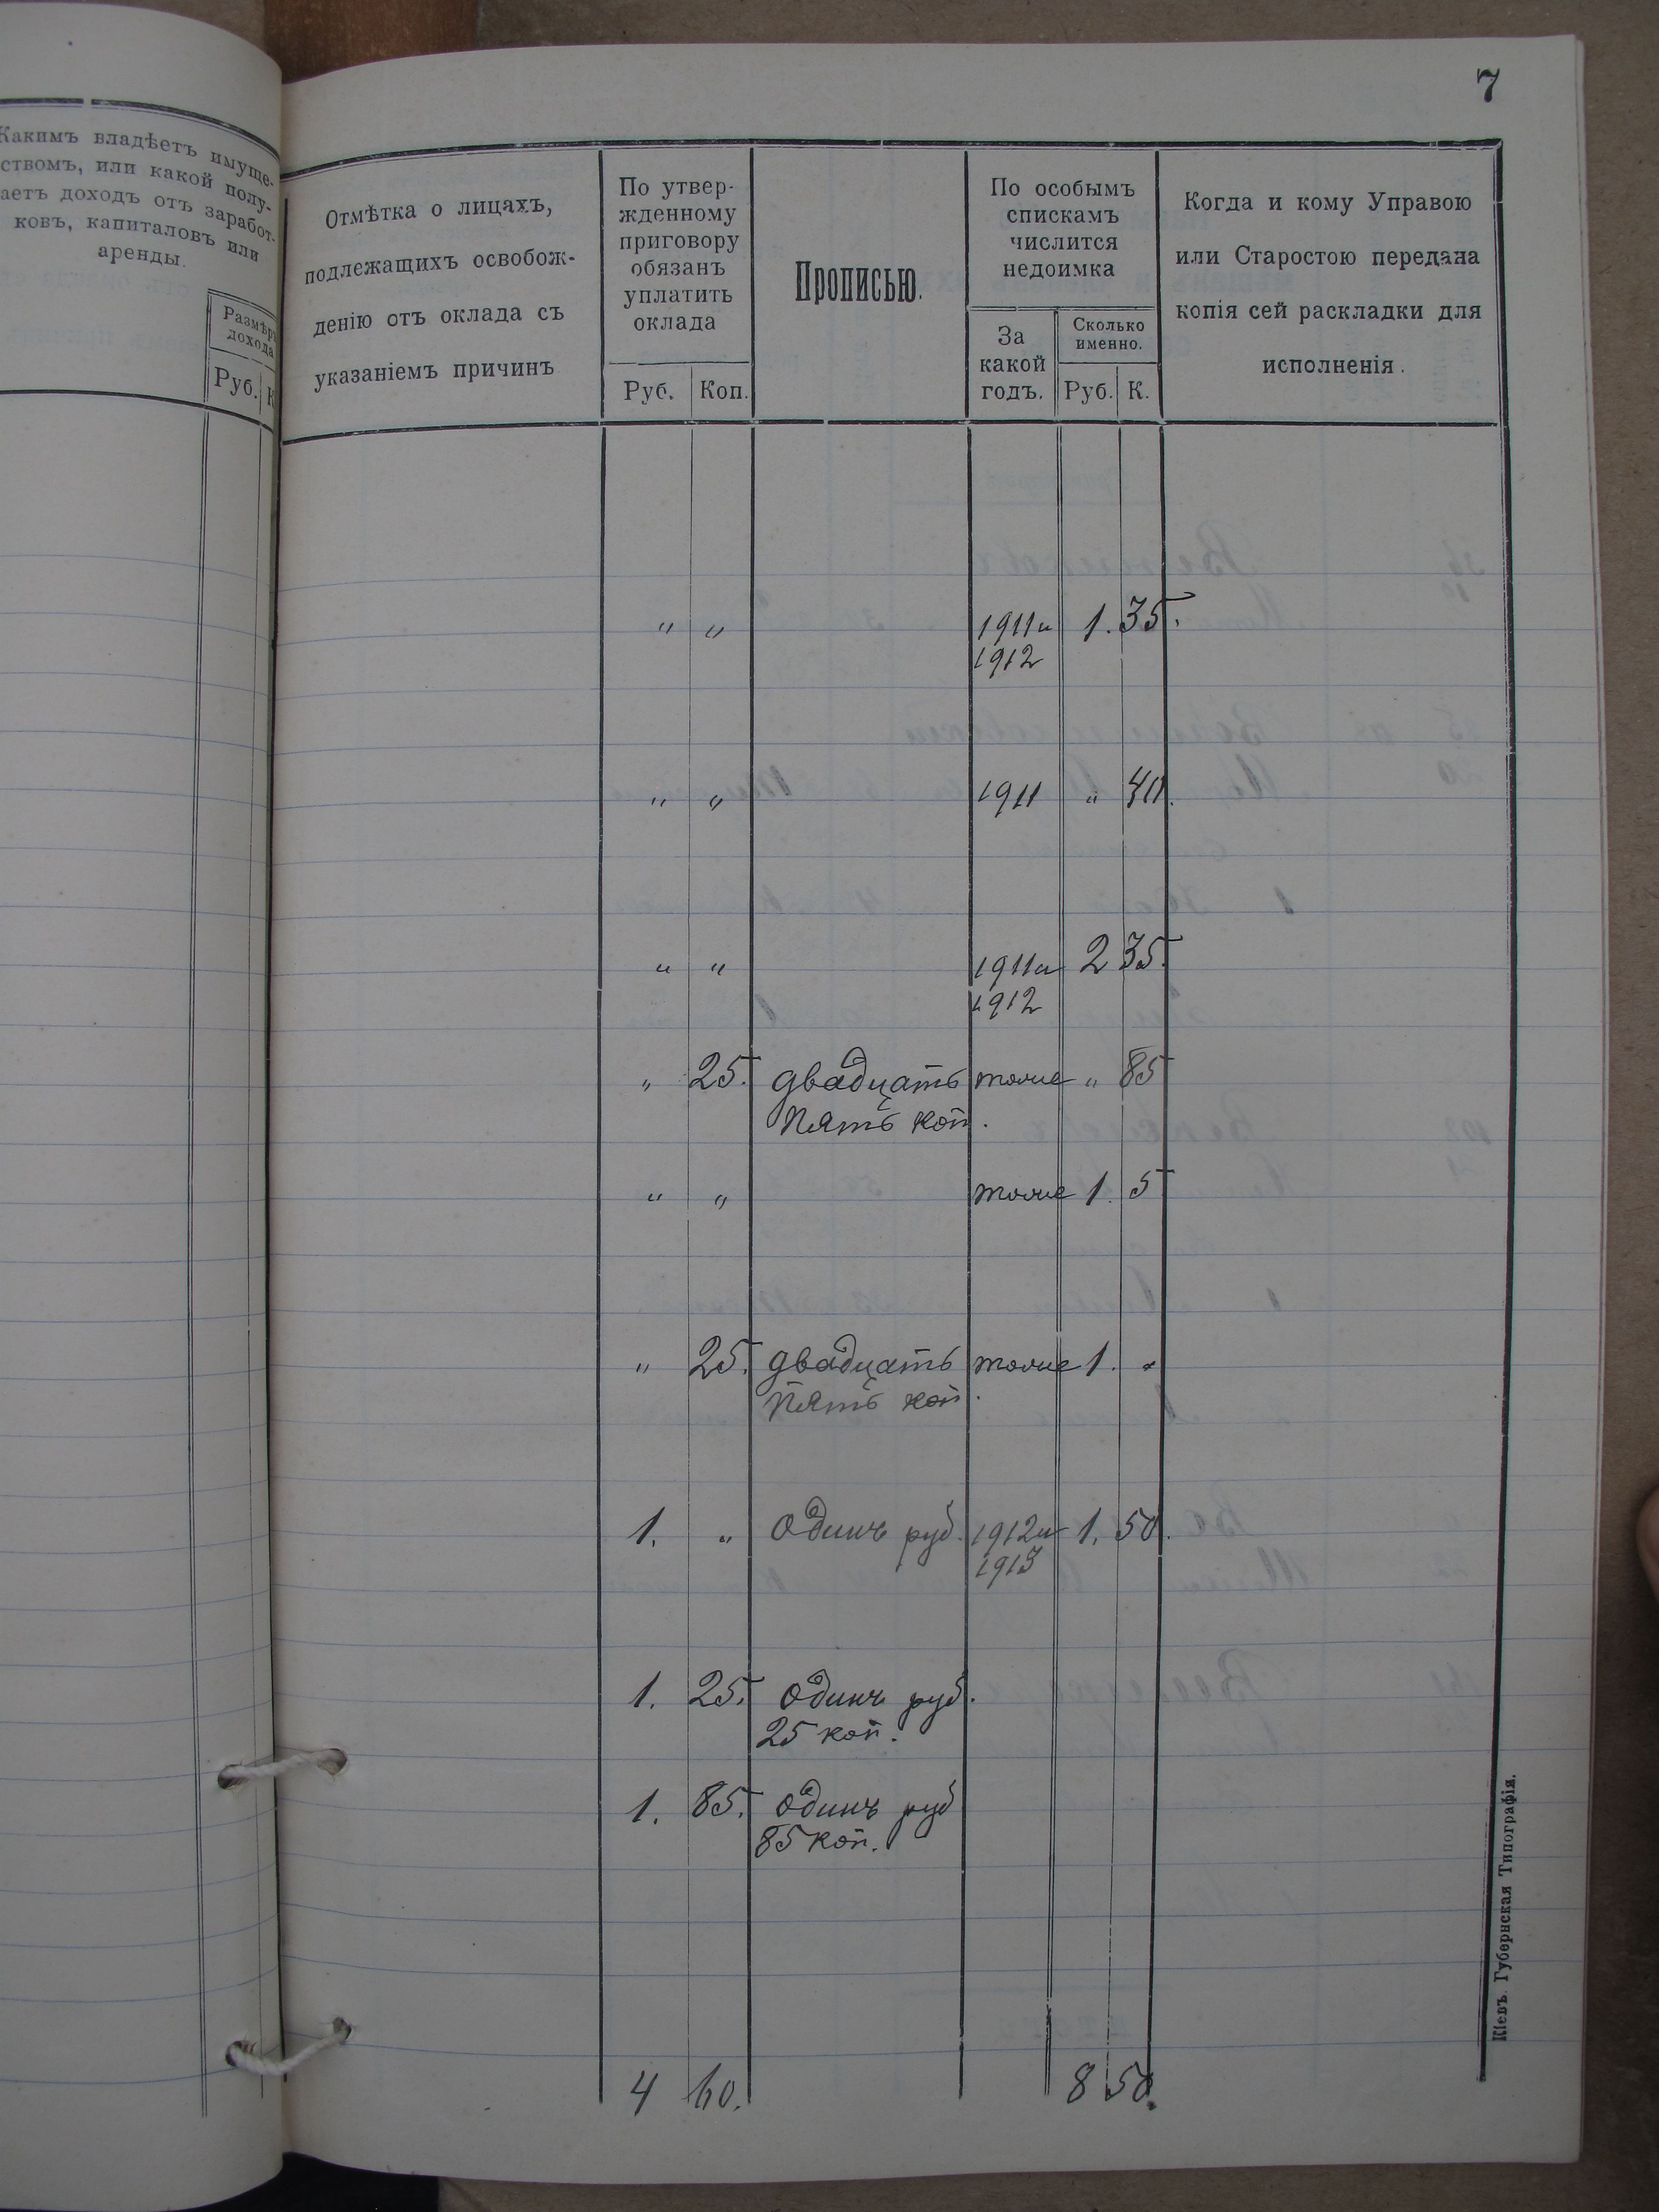 7
Какимъ владѣетъ имуще-
ствомъ, или какой полу-
аетъ доходъ отъ заработ-
ковъ, капиталовъ или
аренды.
Размѣръ
дохода
Руб. К
Отмѣтка о лицахъ,
подлежащихъ освобож-
денію отъ оклада съ
указаніемъ причинъ
По утвер-
жденному
приговору
обязанъ
уплатить
оклада
Руб. Коп.
Прописью.
По особымъ
спискамъ
числится
недоимка
За
какой
годъ.
Сколько
именно.
Руб. К.
Когда и кому Управою
или Старостою передана
копія сей раскладки для
исполненія.
" " 1911 и 1. 35.
1912
" " 1911 " 40.
" " 1911 и 2 35.
1912
" 25. двадцать тоже " 85
пять коп.
" " тоже 1. 5
" 25. двадцать тоже 1. "
пять коп.
1. " Одинъ руб. 1912 и 1. 50.
1913
1. 25. Одинъ руб.
25 коп.
1. 85. Одинъ руб
85 коп.
4 60. 8 50.
Кіевъ. Губернская Типографія.